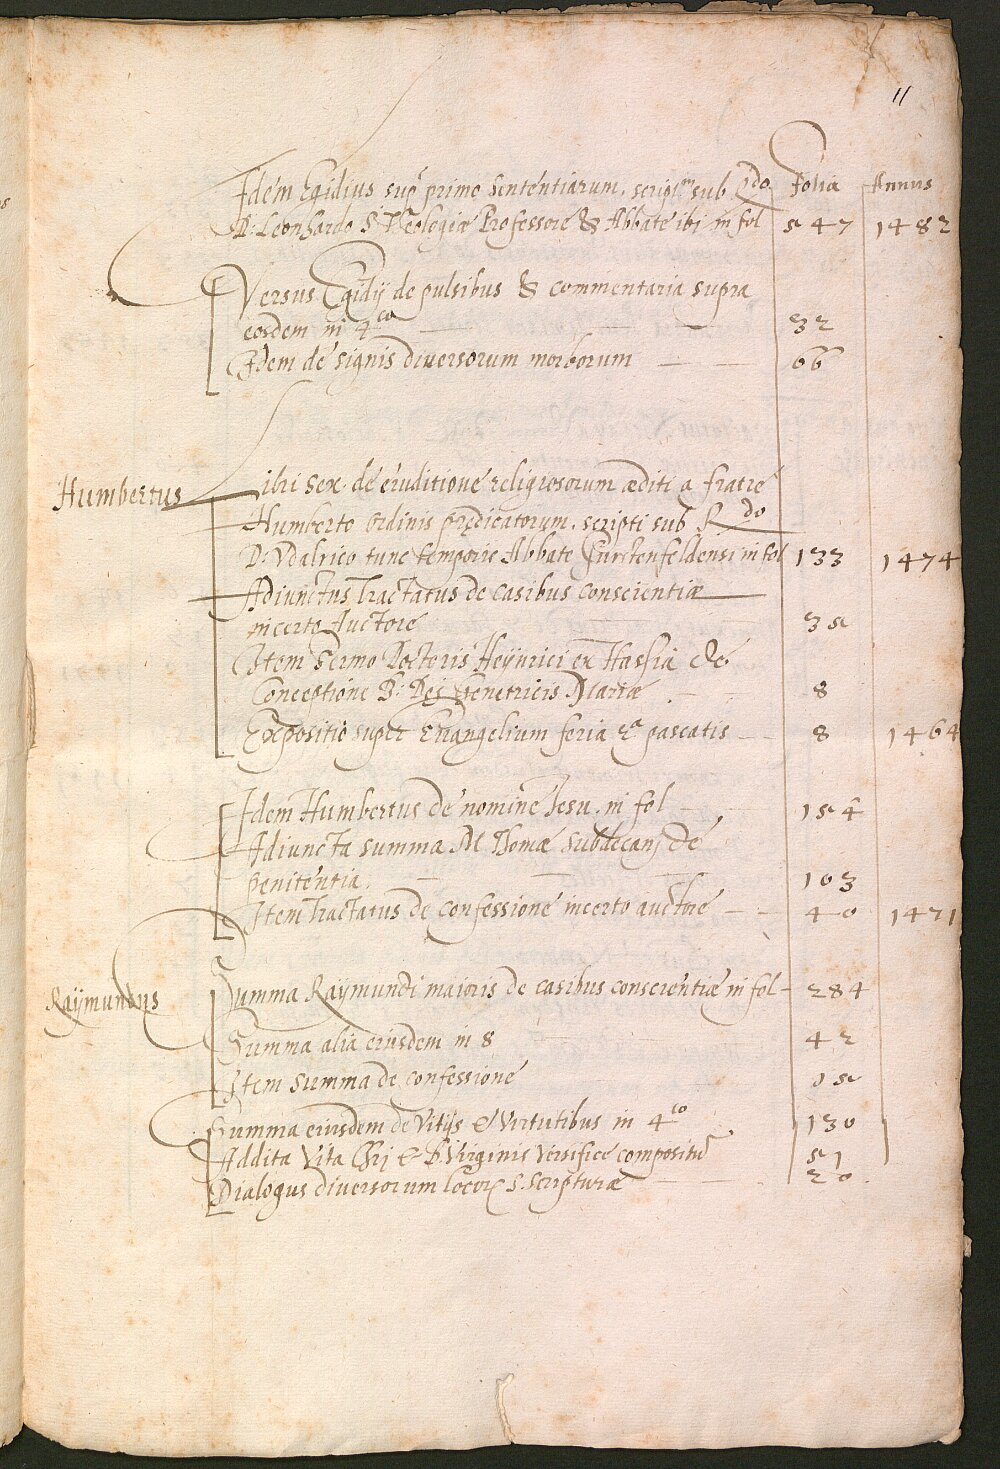 11
Folia Annus
Idem Egidius sup primo Sententiarum, script sub Rdo
D: Leonhardo S: Theologiæ Professore & Abbate ibi in fol 547 1482
Versus Egidij de pulsibus & commentaria supra
eosdem in 4co 32
Idem de signis diversorum morborum 06
Humbertus
Libri sex de eruditione religiosorum æditi a fratre
Humberto ordinis prędicatorum, scripti sub Rdo
D: Vdalrico tunc temporis Abbate Furstenfeldensi in fol 133 1474
Adiunctus Tractatus de casibus conscientiæ
incerto Auctore 35
Item Sermo Doctoris Heÿnrici ex Hassia de
Conceptione B: Dei Genetricis Mariæ 8
Expositio super Euangelium feria 2a pascatis 8 1464
Idem Humbertus de nomine Iesu in fol 154
Adiuncta summa M Thomæ Subdecanj de
penitentia 103
Item Tractatus de confessione incerto auctore 40 1471
Raÿmundus
Summa Raÿmundi maioris de casibus conscientiæ in fol 284
Summa alia eiusdem in 8 42
Item Summa de confessione 15
Summa eiusdem de Vitijs & Virtutibus in 4to 130
Addita Vita Chrj & B Virginis Versifice composit 51
Dialogus diversorum locor S. Scripturæ 20